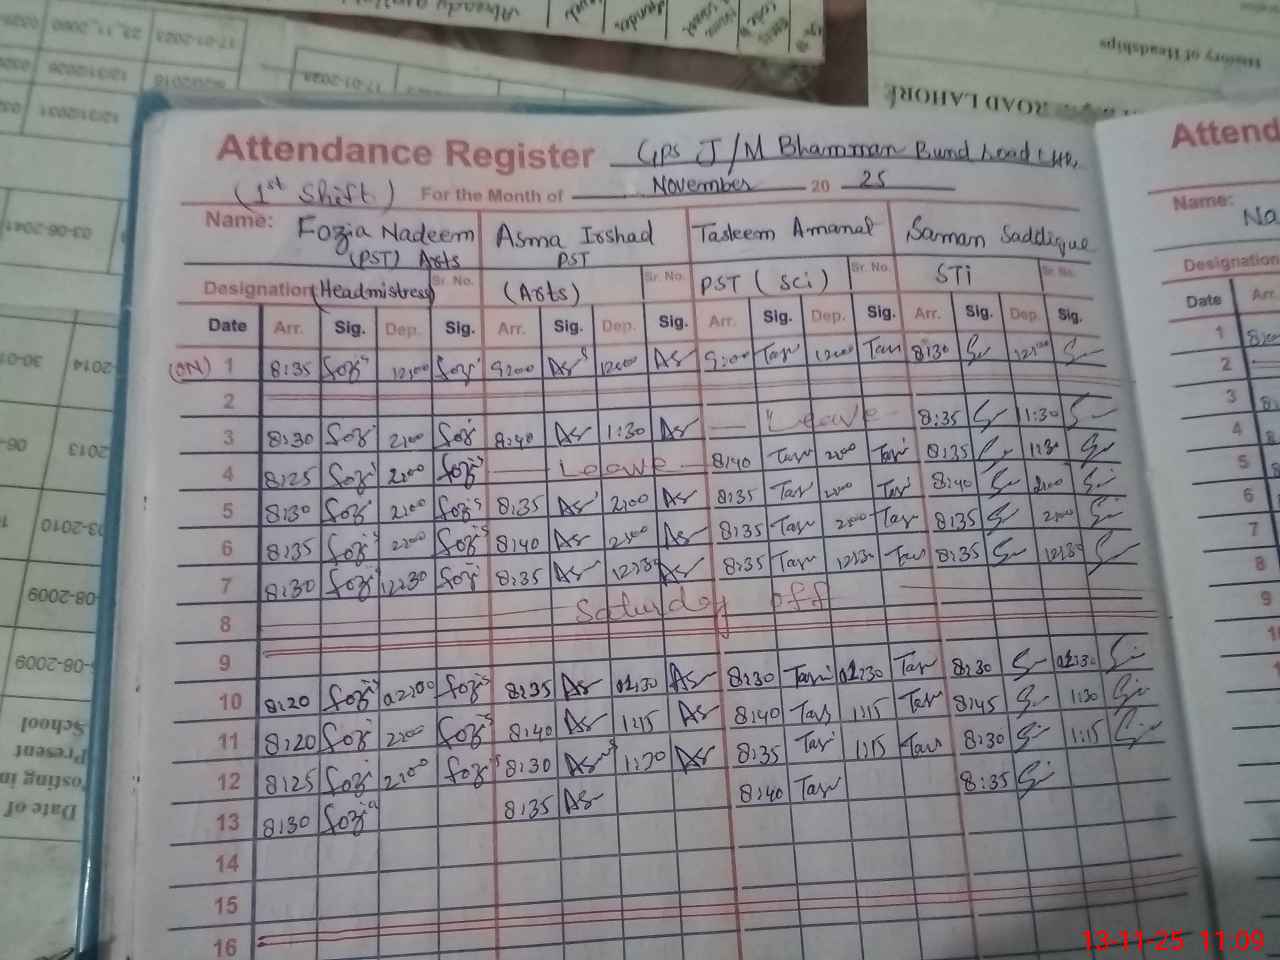 17-01-2023 23_11_2000
17-01-2023
12/31/2031
History of Headships
ROAD LAHORE
Attendance Register GPS J/M Bhamman Bund Road LHR. Attend
(1st Shift) For the Month of November 20 25
Name: Fozia Nadeem Asma Irshad Tasleem Amanat Saman Saddique Name: Na
(PST) Arts PST
Designation (Headmistress) Sr. No. (Arts) Sr. No. PST (Sci) Sr. No. STi Sr. No. Designation
Date Arr. Sig. Dep. Sig. Arr. Sig. Dep. Sig. Arr. Sig. Dep. Sig. Arr. Sig. Dep. Sig. Date Arr.
(ON) 1 8:35 Foz 12:00 Foz 9:00 As 12:00 As 9:00 Tas 12:00 Tas 8:30 12:00 1
2 2
3 8:30 Foz 2:00 Foz 8:40 As 1:30 As Leave 8:35 1:30 3
4 8:25 Foz 2:00 Foz Leave 8:40 Tas 2:00 Tas 8:35 1:30 4
5 8:30 Foz 2:00 Foz 8:35 As 2:00 As 8:35 Tas 2:00 Tas 8:40 2:00 5
6 8:35 Foz 2:00 Foz 8:40 As 2:00 As 8:35 Tas 2:00 Tas 8:35 2:00 6
7 8:30 Foz 12:30 Foz 8:35 As 12:30 As 8:35 Tas 12:30 Tas 8:35 12:30 7
8 Saturday off 8
9 9
10 8:20 Foz 02:00 Foz 8:35 As 01:30 As 8:30 Tas 01:30 Tas 8:30 01:30
11 8:20 Foz 2:00 Foz 8:40 As 1:15 As 8:40 Tas 1:15 Tas 8:45 1:30
12 8:25 Foz 2:00 Foz 8:30 As 1:20 As 8:35 Tas 1:15 Tas 8:30 1:15
13 8:30 Foz 8:35 As 8:40 Tas 8:35
14
15
16
03-06-2041
2014
2013
03-2010
08-2009
06-2009
School
Present
Posting in
Date of
13-11-25 11.09